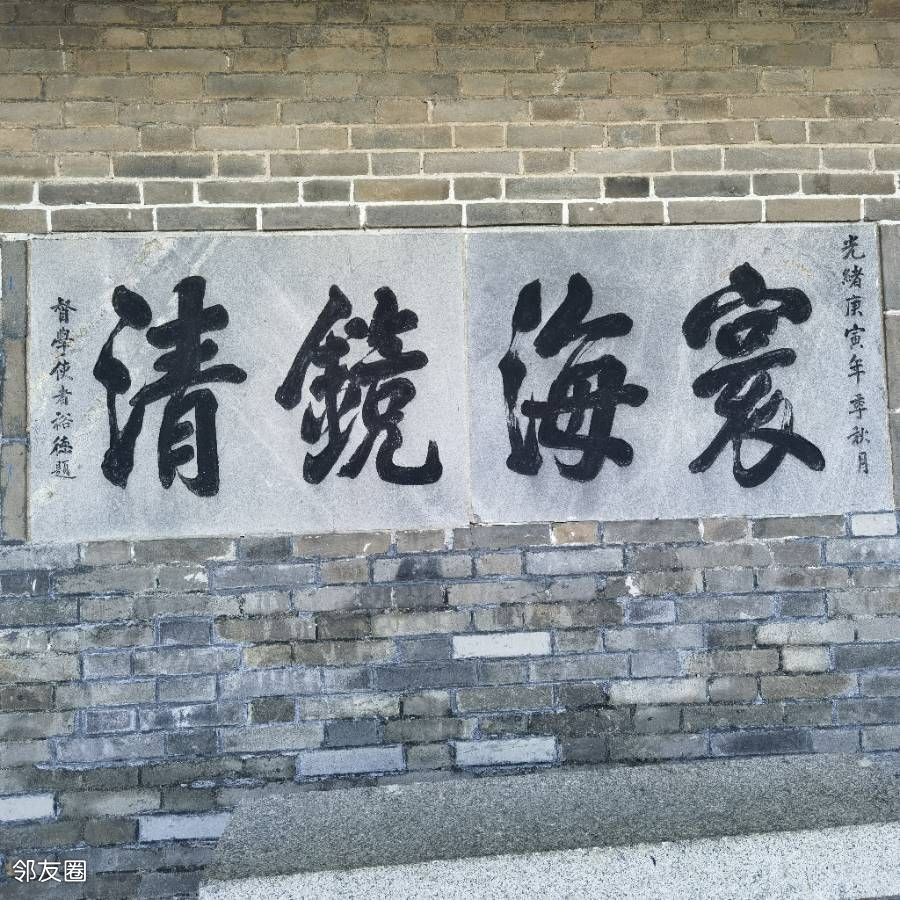 光緒庚寅年季秋月
寰海鏡清
督學使者裕德題
邻友圈